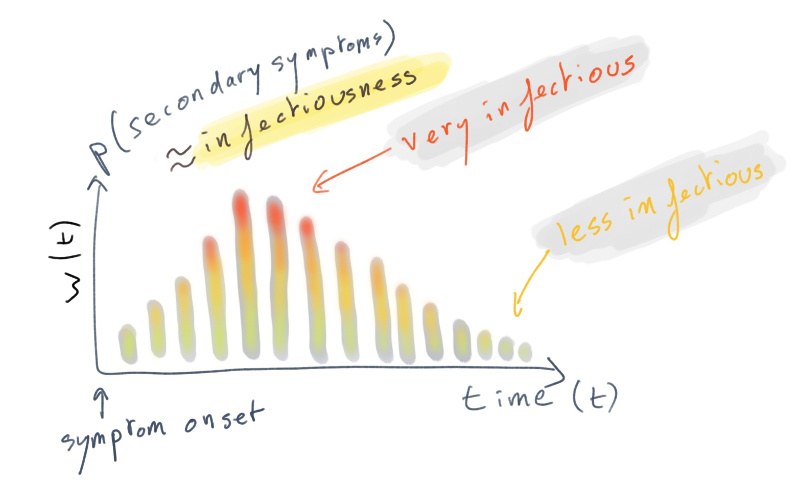 p(secondary symptoms)
≈ infectiousness
very infectious
less infectious
w(t)
time (t)
symptom onset